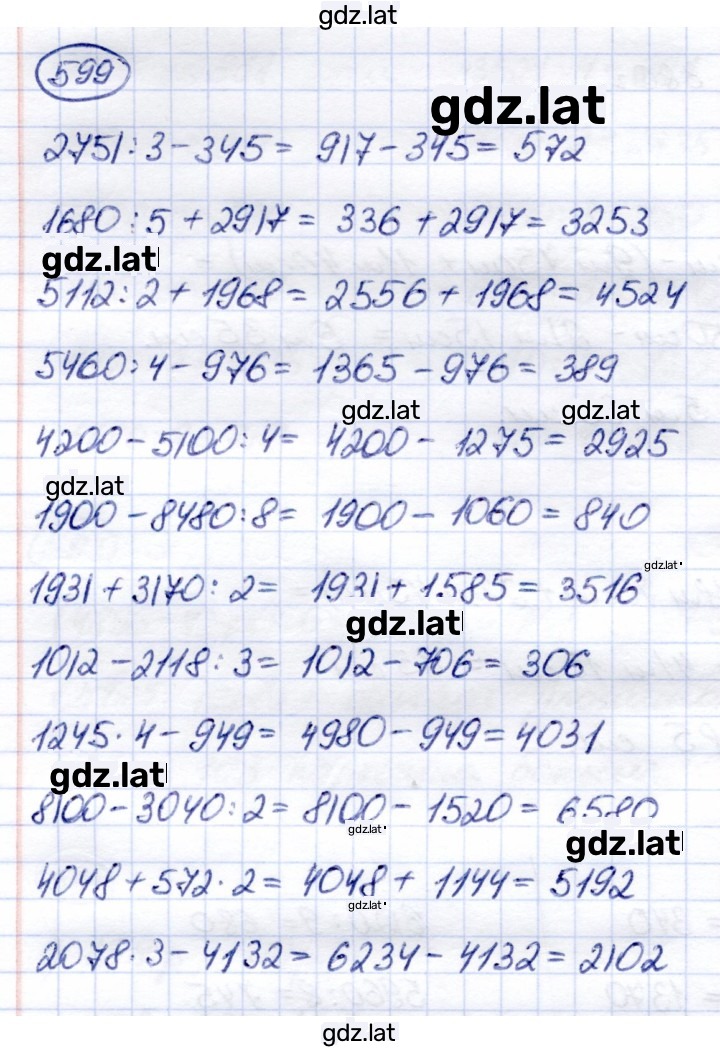 gdz.lat
599
gdz.lat
2751:3-345= 917-345= 572
1680:5+2917= 336+2917= 3253
gdz.lat
5112:2+1968= 2556+1968= 4524
5460:4-976= 1365-976= 389
gdz.lat gdz.lat
4200-5100:4= 4200-1275= 2925
gdz.lat
1900-8480:8= 1900-1060= 840
gdz.lat
1931+3170:2= 1931+1585= 3516
gdz.lat
1012-2118:3= 1012-706= 306
1245·4-949= 4980-949= 4031
gdz.lat
8100-3040:2= 8100-1520= 6580
gdz.lat
gdz.lat
4048+572·2= 4048+1144= 5192
gdz.lat
2078·3-4132= 6234-4132= 2102
gdz.lat